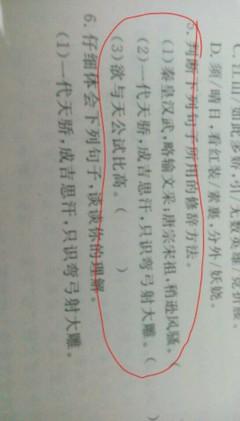 C.江山/如此多娇,引/无数英雄/竞折腰。
D.须/晴日,看红装/素裹,分外/妖娆。
5.判断下列句子所用的修辞方法。
(1)秦皇汉武,略输文采;唐宗宋祖,稍逊风骚。(
(2)一代天骄,成吉思汗,只识弯弓射大雕。(
(3)欲与天公试比高。( )
6.仔细体会下列句子,谈谈你的理解。
(1)一代天骄,成吉思汗,只识弯弓射大雕。